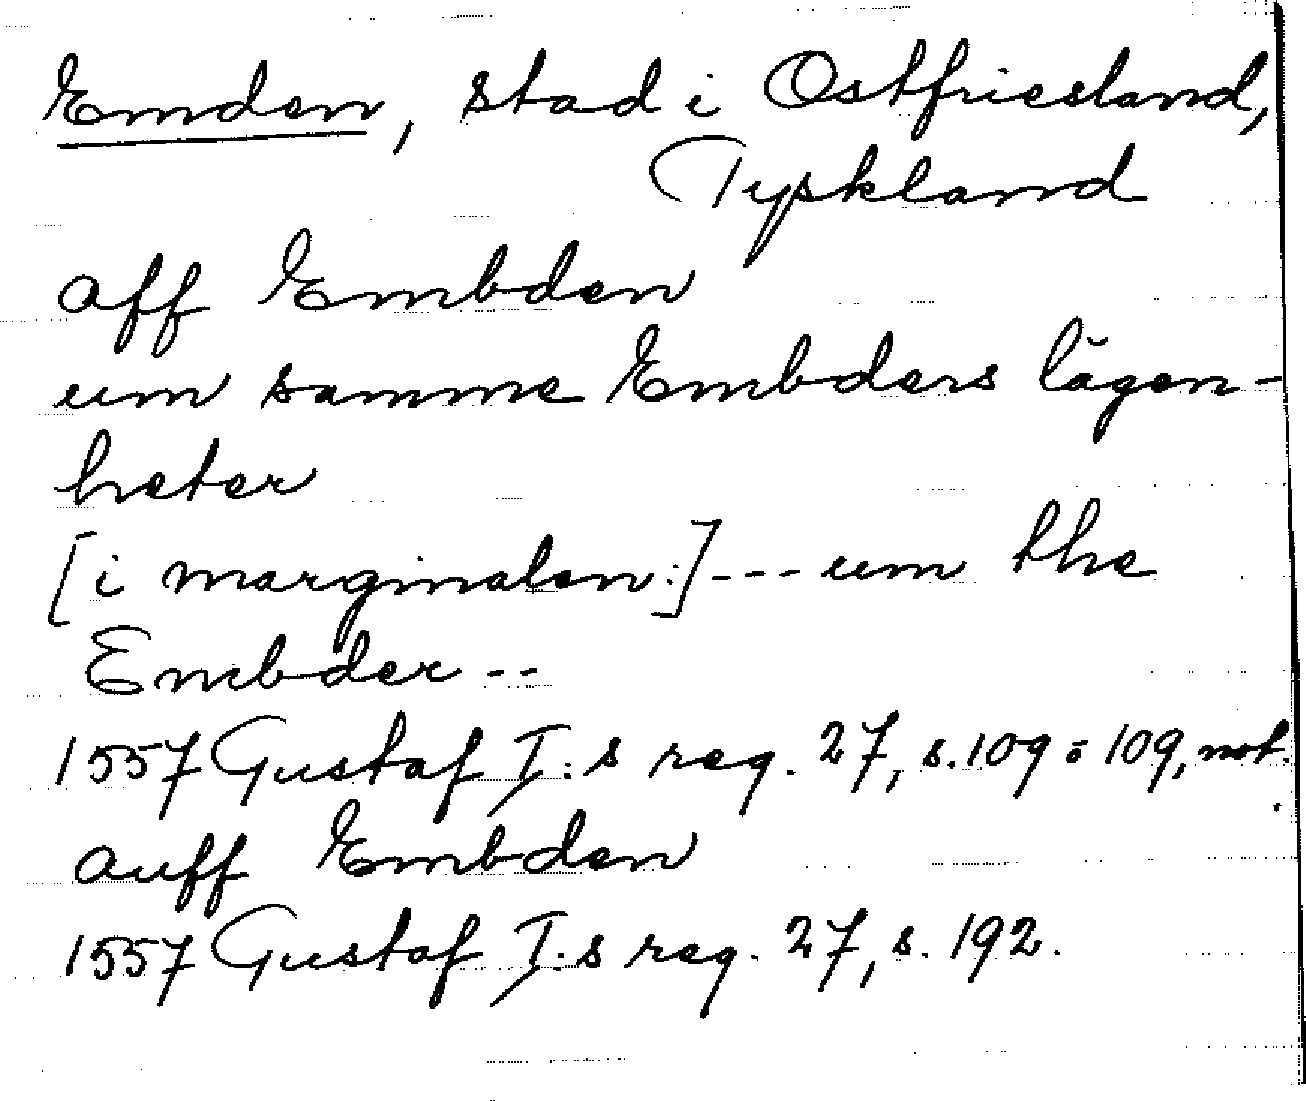 Emden, stad i Ostfriesland,
Tyskland
aff Embden
um samme Embders lägen-
heter
[i marginalen:] --- um the
Embder --
1557 Gustaf I:s reg. 27, s. 109 o 109, not.
auff Embden
1557 Gustaf I:s reg. 27, s. 192.